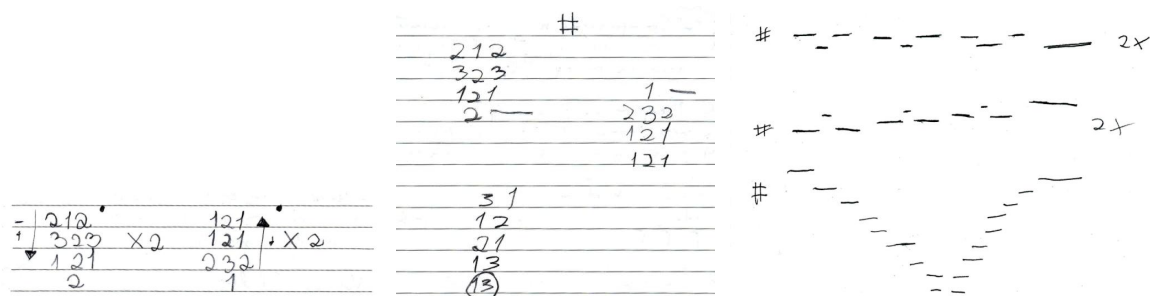 - 212 121
+ 323 X2 121 + X2
121 232
2 1
#
212
323
121 1 —
2 — 232
121
121
31
12
21
13
13
# 2x
# 2x
#